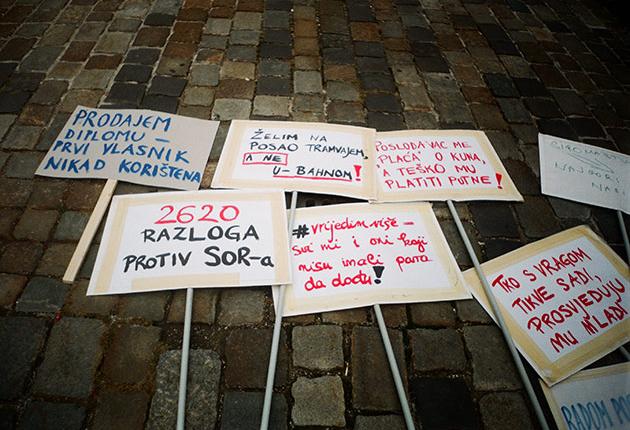 PRODAJEM
DIPLOMU –
PRVI VLASNIK
NIKAD KORIŠTENA
ŽELIM NA
POSAO TRAMVAJEM,
A NE
U-BAHNOM!
POSLODAVAC ME
PLAĆA 0 KUNA,
A TEŠKO MU
PLATITI PUTNE!
2620
RAZLOGA
PROTIV SOR-a
#vrijedim više –
svi mi i oni koji
nisu imali para
da dođu!
TKO S VRAGOM
TIKVE SADI,
PROSVJEDUJU
MU MLADI
RADOM